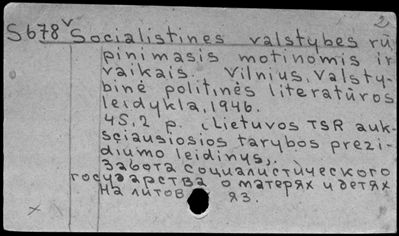 2
S678v Socialistines valstybes rū
pinimasis motinomis ir
vaikais. Vilnius, Valsty-
binė politinės literatūros
leidykla, 1946.
45,2 p. (Lietuvos TSR auk-
sciausiosios tarybos prezi-
diumo leidinys,.
Забота социалистического
государства о матерях и детях
На литов яз.
×